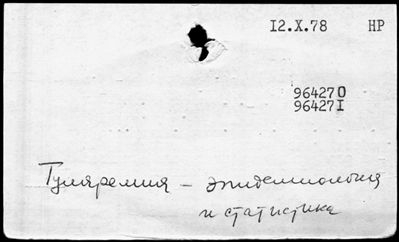 I2.X.78 НР
96427O
96427I
Туляремия – эпидемиология
и статистика